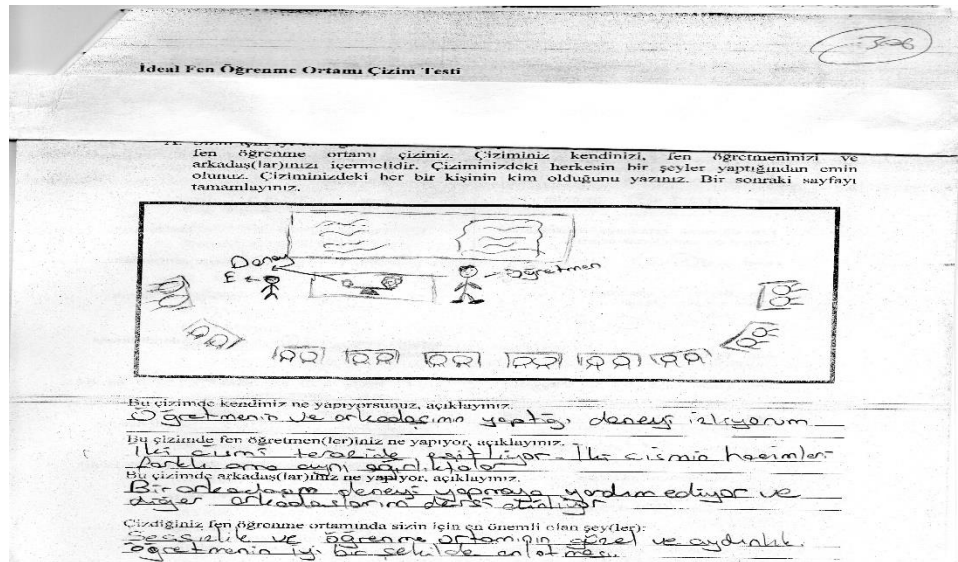 306
İdeal Fen Öğrenme Ortamı Çizim Testi
fen öğrenme ortamı çiziniz. Çiziminiz kendinizi, fen öğretmeninizi ve
arkadaş(lar)ınızı içermelidir. Çiziminizdeki herkesin bir şeyler yaptığından emin
olunuz. Çiziminizdeki her bir kişinin kim olduğunu yazınız. Bir sonraki sayfayı
tamamlayınız.
Deney
E
Öğretmen
Bu çizimde kendiniz ne yapıyorsunuz, açıklayınız.
Öğretmenin ve arkadaşımın yaptığı deneyi izliyorum
Bu çizimde fen öğretmen(ler)iniz ne yapıyor, açıklayınız.
İki cismi terazide eşitliyor. İki cismin hacimleri
farklı ama aynı ağırlıktalar
Bu çizimde arkadaş(lar)ınız ne yapıyor, açıklayınız.
Bir arkadaşım deneyi yapmaya yardım ediyor ve
diğer arkadaşlarım dersi dinliyor
Çizdiğiniz fen öğrenme ortamında sizin için en önemli olan şey(ler):
Sessizlik ve öğrenme ortamının güzel ve aydınlık.
öğretmenin iyi bir şekilde anlatması